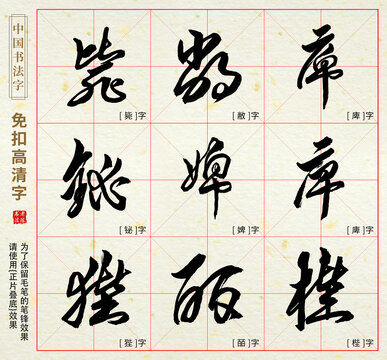 中国书法字
免扣高清字
为了保留毛笔的笔锋效果
请使用[正片叠底]效果
毙 敝 庳
[毙]字 [敝]字 [庳]字
铋 婢 庳
[铋]字 [婢]字 [庳]字
狴 皕 梐
[狴]字 [皕]字 [梐]字